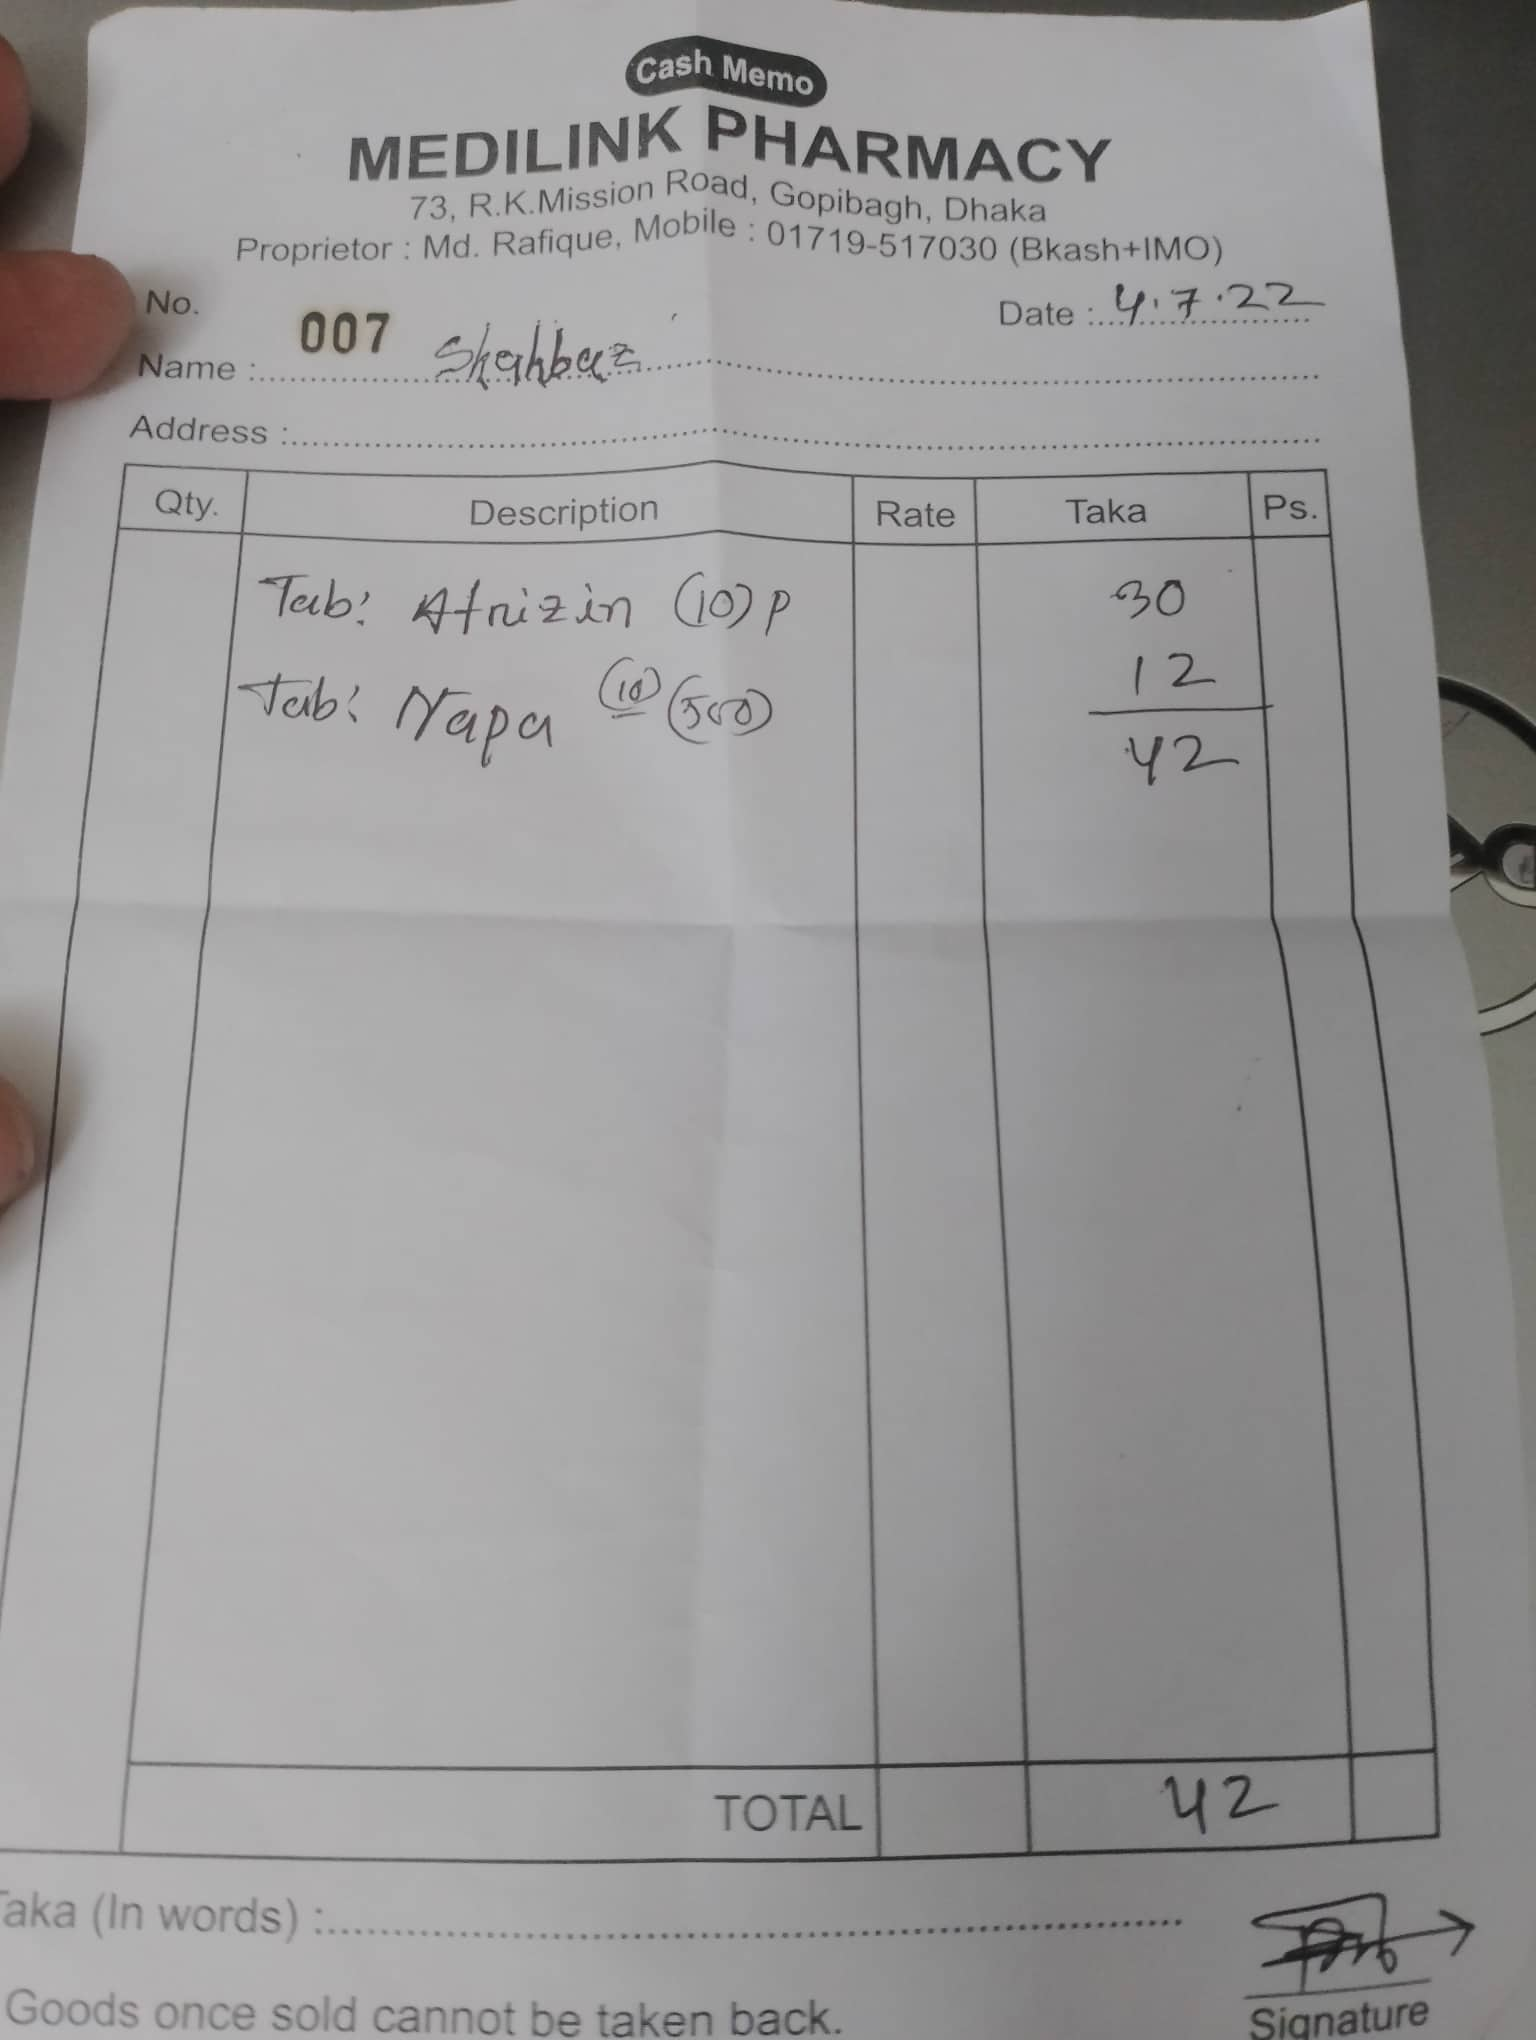 Cash Memo
MEDILINK PHARMACY
73, R.K.Mission Road, Gopibagh, Dhaka
Proprietor : Md. Rafique, Mobile : 01719-517030 (Bkash+IMO)
No. 007
Date : 4.7.22
Name : Shahbaz
Address :
Qty. Description Rate Taka Ps.
Tab: Atrizin (10) p 30
Tab: Napa (10) (500) 12
42
TOTAL 42
Taka (In words) :
Goods once sold cannot be taken back.
Signature